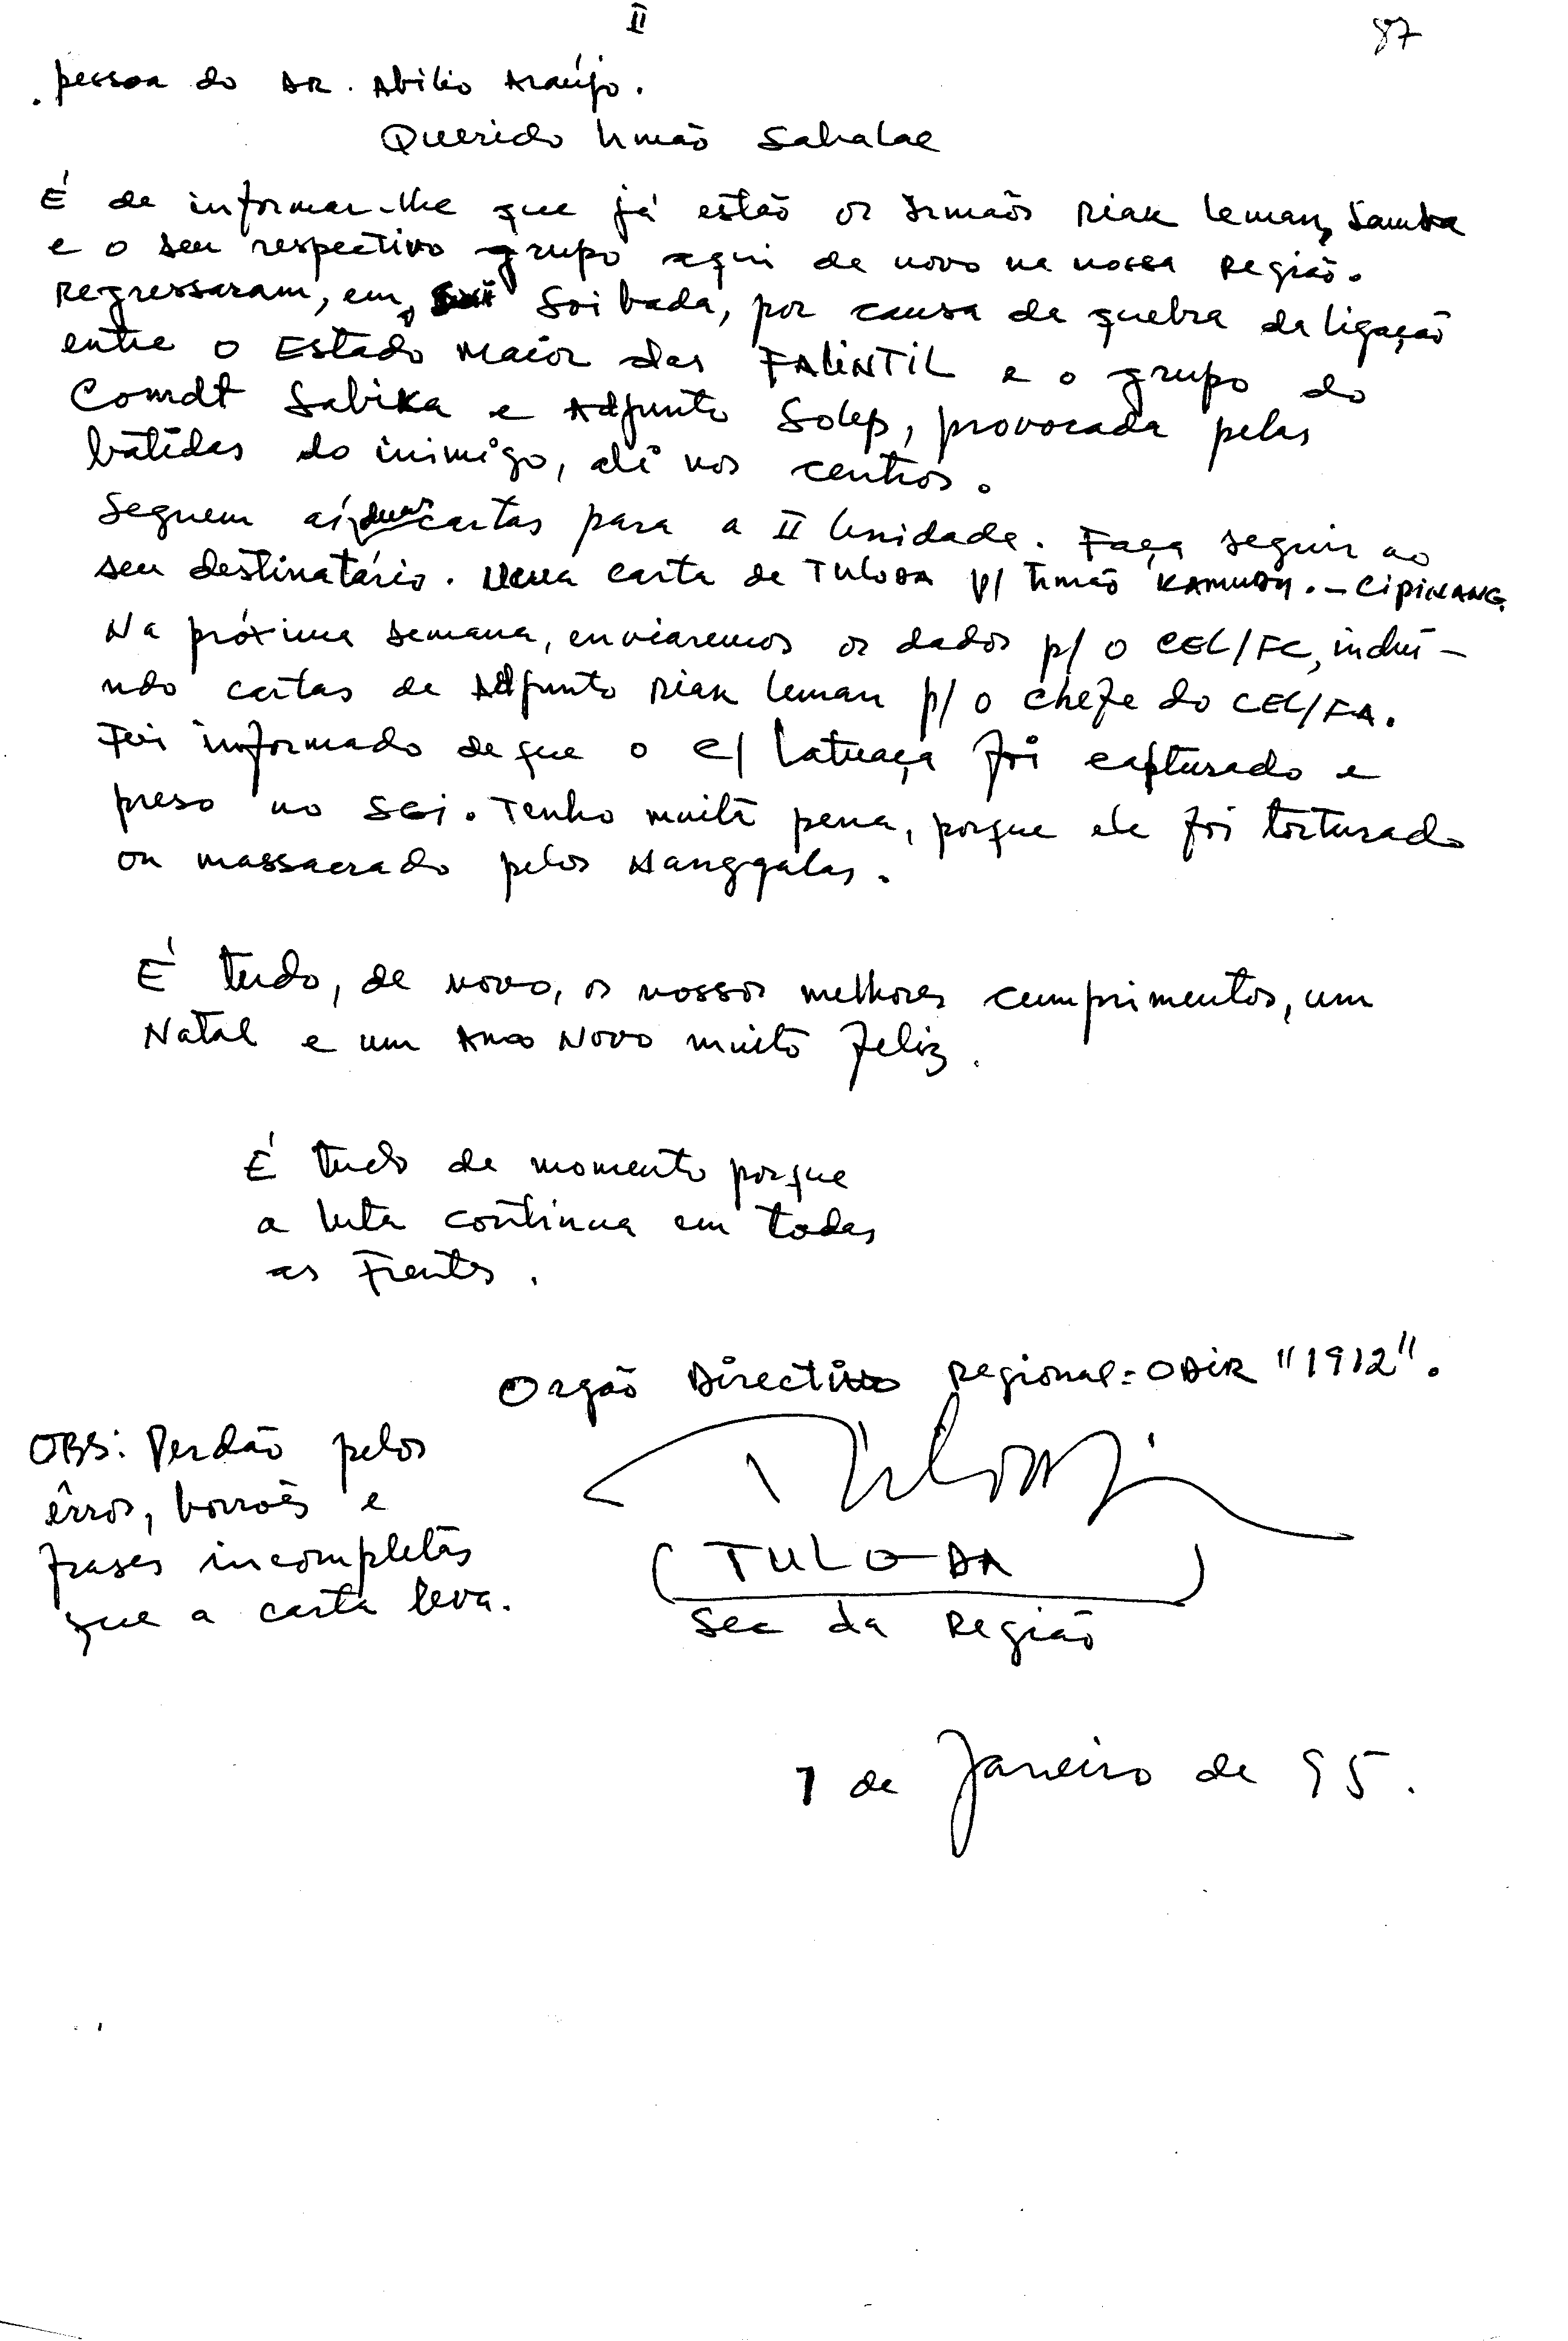 II
87
. pessoa do DR. Abílio Araújo.
Querido Irmão Sahalae
É de informar-lhe que já estão os Irmãos Riak Leman, Samba
e o seu respectivo grupo aqui de novo na nossa Região.
Regressaram, em, Soibada, por causa da quebra da ligação
entre o Estado Maior das FALINTIL e o grupo do
Comdt Sabika e Adjunto Solep, provocada pelas
batidas do inimigo, ali nos centros.
Seguem aí, duas cartas para a II Unidade. Faça seguir ao
seu destinatário. Uma carta de TULODA p/ Irmão KAMUDY.-CIPINANG
Na próxima semana, enviaremos os dados p/ o CEL/FC, inclui-
ndo cartas de Adjunto Riak Leman p/ o chefe do CEL/FA.
Foi informado de que o C/ Latuaça foi capturado e
preso no SGI. Tenho muita pena, porque ele foi torturado
ou massacrado pelos Nanggalas.
É tudo, de novo, os nossos melhores cumprimentos, um
Natal e um Ano Novo muito Feliz.
É tudo de momento porque
a luta continua em todas
as Frentes.
Orgão Directivo Regional=ODIR "1912".
OBS: Perdão pelos
êrros, borrões e
frases incompletas
que a carta leva.
(TULO-DA)
Sec da Região
7 de Janeiro de 95.